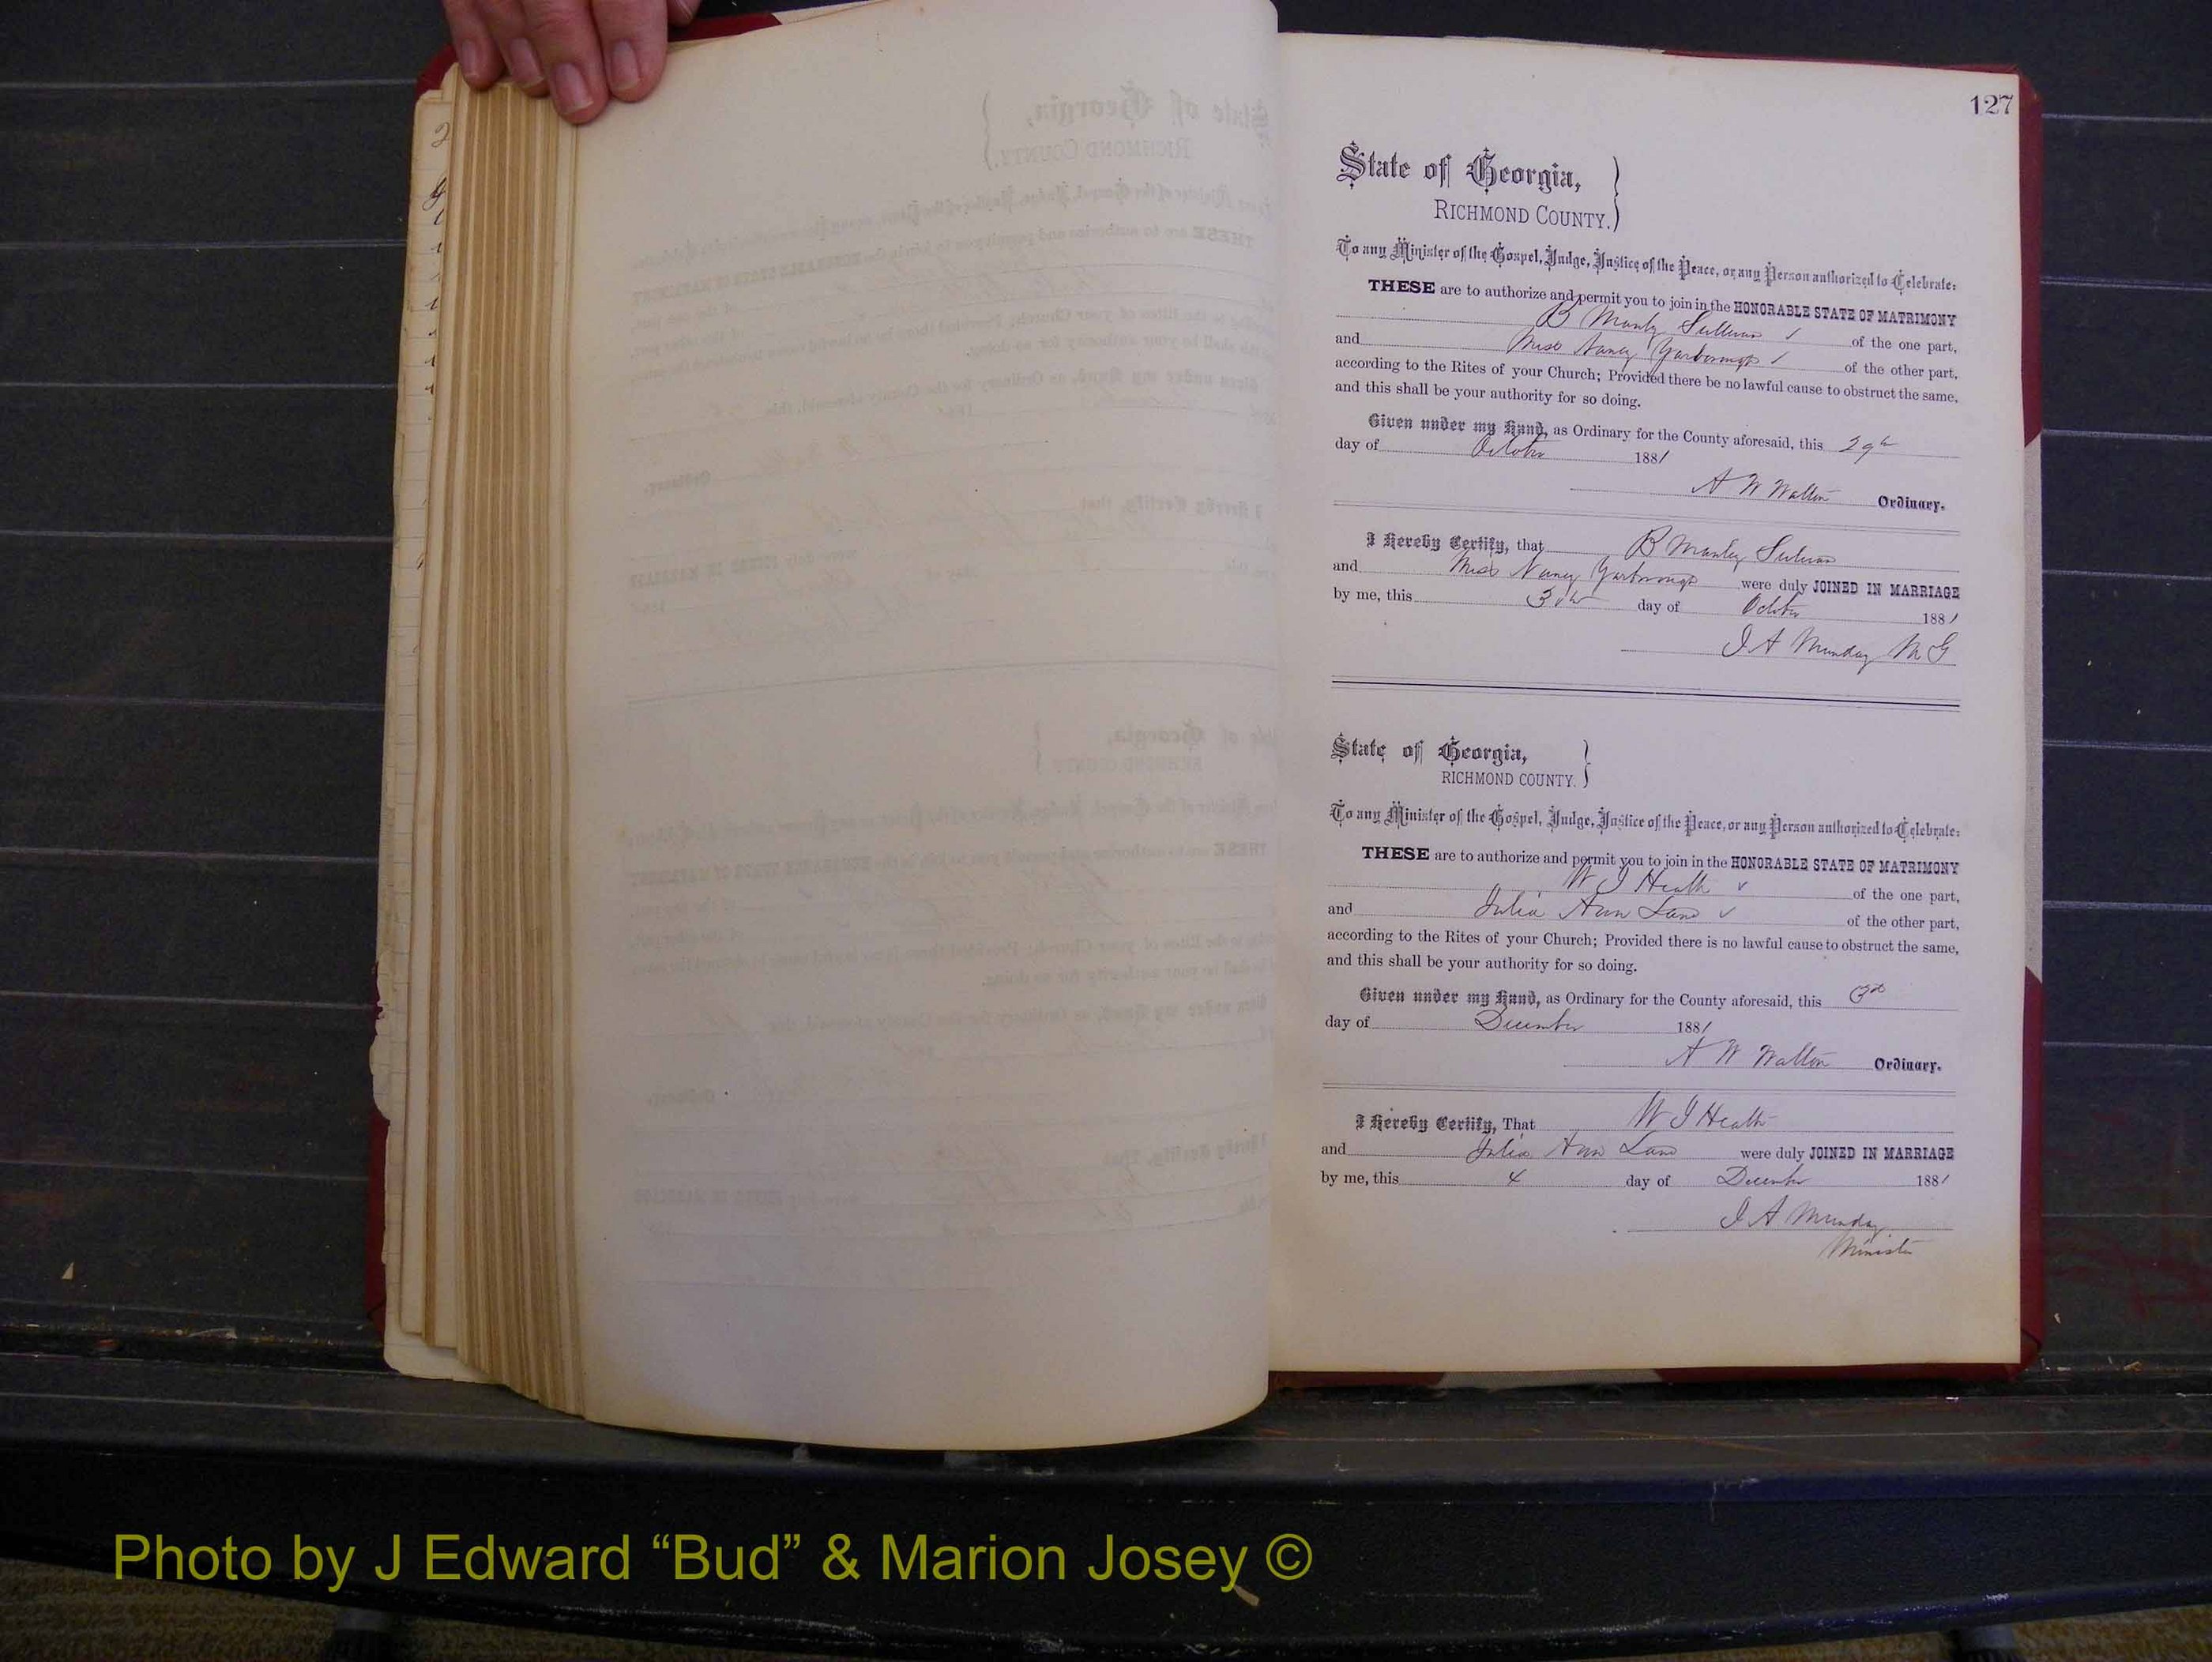 127
State of Georgia,
RICHMOND COUNTY.
To any Minister of the Gospel, Judge, Justice of the Peace, or any Person authorized to Celebrate:
THESE are to authorize and permit you to join in the HONORABLE STATE OF MATRIMONY
B Manly Sullivan of the one part,
and Miss Nancy Yarborough of the other part,
according to the Rites of your Church; Provided there be no lawful cause to obstruct the same,
and this shall be your authority for so doing.
Given under my Hand, as Ordinary for the County aforesaid, this 29th
day of October 1881
A W Walton Ordinary.
I Hereby Certify, that B Manly Sullivan
and Miss Nancy Yarborough were duly JOINED IN MARRIAGE
by me, this 30th day of October 1881
J A Munday M G
State of Georgia,
RICHMOND COUNTY.
To any Minister of the Gospel, Judge, Justice of the Peace, or any Person authorized to Celebrate:
THESE are to authorize and permit you to join in the HONORABLE STATE OF MATRIMONY
W J Heath of the one part,
and Julia Ann Lano of the other part,
according to the Rites of your Church; Provided there is no lawful cause to obstruct the same,
and this shall be your authority for so doing.
Given under my Hand, as Ordinary for the County aforesaid, this 3rd
day of December 1881
A W Walton Ordinary.
I Hereby Certify, That W J Heath
and Julia Ann Lano were duly JOINED IN MARRIAGE
by me, this 4 day of December 1881
J A Munday
Minister
Photo by J Edward “Bud” & Marion Josey ©